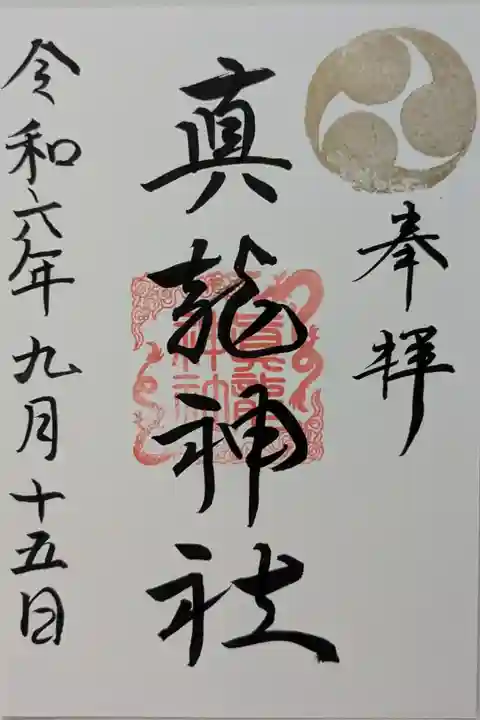 奉拝
真龍神社
眞龍
神社
令和六年九月十五日